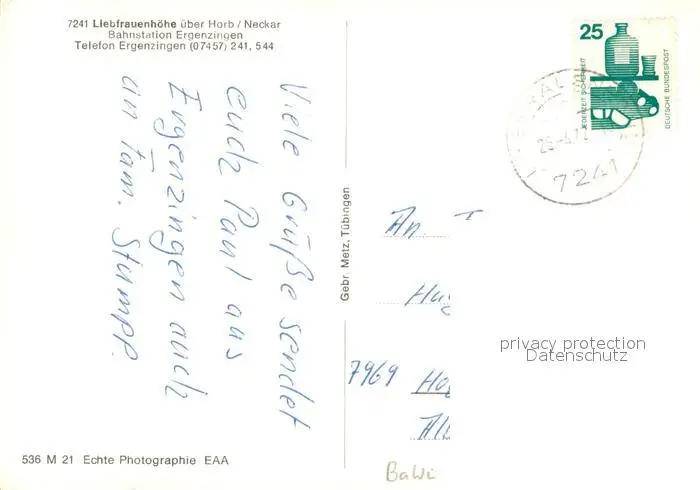 7241 Liebfrauenhöhe über Horb / Neckar
Bahnstation Ergenzingen
Telefon Ergenzingen (07457) 241, 544
Viele Grüße sendet
euch Paul aus
Ergenzingen auch
an Fam. Stumpp.
Gebr. Metz, Tübingen
25
JEDERZEIT SICHERHEIT
DEUTSCHE BUNDESPOST
7241
An.
7969
privacy protection
Datenschutz
BaWü
536 M 21 Echte Photographie EAA